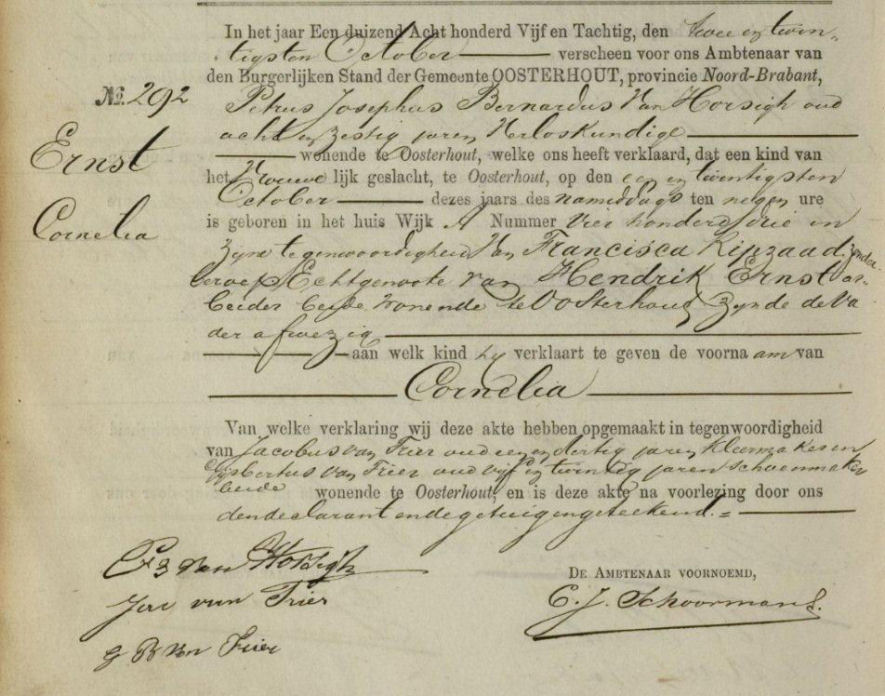 In het jaar Een duizend Acht honderd Vijf en Tachtig, den twee en twin-
tigsten October verscheen voor ons Ambtenaar van
den Burgerlijken Stand der Gemeente OOSTERHOUT, provincie Noord-Brabant,
No. 292
Petrus Josephus Bernardus Van Horsigh oud
acht en zestig jaren Verloskundige
Ernst
wonende te Oosterhout, welke ons heeft verklaard, dat een kind van
het Vrouwelijk geslacht, te Oosterhout, op den een en twintigsten
October dezes jaars des namiddags ten negen ure
Cornelia
is geboren in het huis Wijk A Nummer vier honderd drie in
zijne tegenwoordigheid Van Francisca Kipzaad, zonder
beroep Echtgenoote van Hendrik Ernst ar-
beider beide wonende te Oosterhout zijnde de Va
der afwezig
aan welk kind hij verklaart te geven de voornaam van
Cornelia
Van welke verklaring wij deze akte hebben opgemaakt in tegenwoordigheid
van Jacobus van Trier oud een en dertig jaren kleermaker en
Gijsbertus van Trier oud vijf en twintig jaren schoenmaker
beide wonende te Oosterhout, en is deze akte na voorlezing door ons
den declarant en de getuigen geteekend. =
van Horsigh
DE AMBTENAAR VOORNOEMD,
van Trier
C. J. Schoormans.
G B van Trier